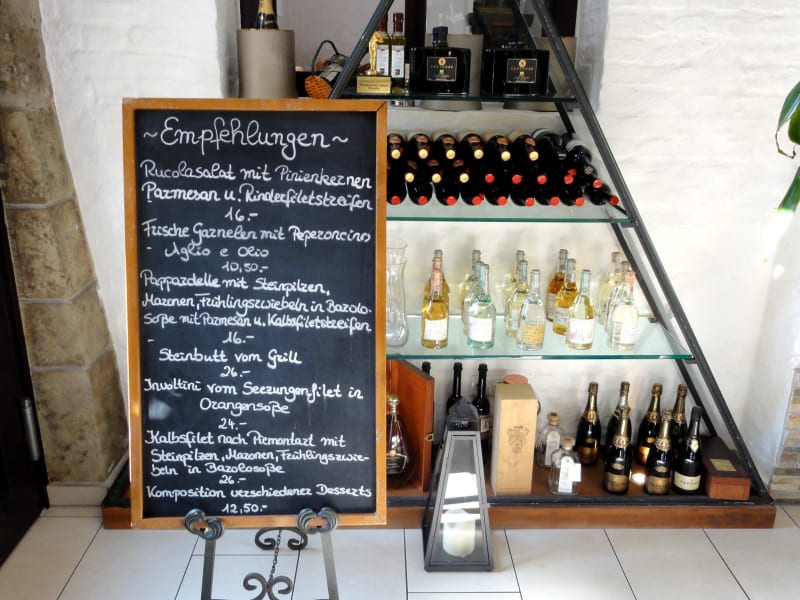 ~ Empfehlungen ~
Rucolasalat mit Pinienkernen
Parmesan u. Rinderfiletstreifen
16.-
Frische Garnelen mit Peperoncino
- Aglio e Olio
10,50.-
Pappardelle mit Steinpilzen,
Maronen, Frühlingszwiebeln in Barolo-
soße mit Parmesan u. Kalbsfiletstreifen
- 16.-
Steinbutt vom Grill
26.-
Involtini vom Seezungenfilet in
Orangensoße
24.-
Kalbsfilet nach Piemontart mit
Steinpilzen, Maronen, Frühlingszwie-
beln in Barolosoße
26.-
Komposition verschiedener Desserts
12,50.-